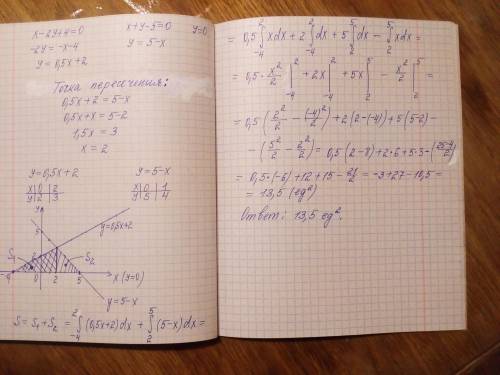 x-2y+4=0 x+y-5=0 y=0
-2y=-x-4 y=5-x
y=0,5x+2
Точка пересечения:
0,5x+2=5-x
0,5x+x=5-2
1,5x=3
x=2
y=0,5x+2 y=5-x
x|0|2 x|0|1
y|2|3 y|5|4
y
5
y=0,5x+2
S₁ S₂
-4 0 2 5 x (y=0)
y=5-x
S=S₁+S₂=∫₋₄² (0,5x+2)dx + ∫₂⁵ (5-x)dx=
=0,5∫₋₄² xdx+2∫₋₄² dx+5∫₂⁵ dx-∫₂⁵ xdx=
=0,5·x²/2|₋₄² +2x|₋₄² +5x|₂⁵ - x²/2|₂⁵ =
=0,5(2²/2-(-4)²/2)+2(2-(-4))+5(5-2)-
-(5²/2-2²/2)=0,5(2-8)+2·6+5·3-(25-4/2)
=0,5·(-6)+12+15-21/2=-3+27-10,5=
=13,5 (ед²)
Ответ: 13,5 ед².